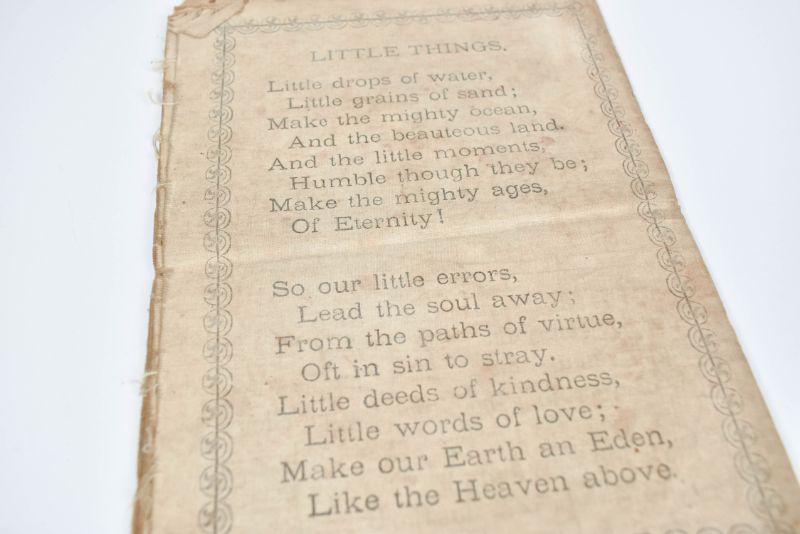 LITTLE THINGS.
Little drops of water,
Little grains of sand;
Make the mighty ocean,
And the beauteous land.
And the little moments,
Humble though they be;
Make the mighty ages,
Of Eternity!
So our little errors,
Lead the soul away;
From the paths of virtue,
Oft in sin to stray.
Little deeds of kindness,
Little words of love;
Make our Earth an Eden,
Like the Heaven above.